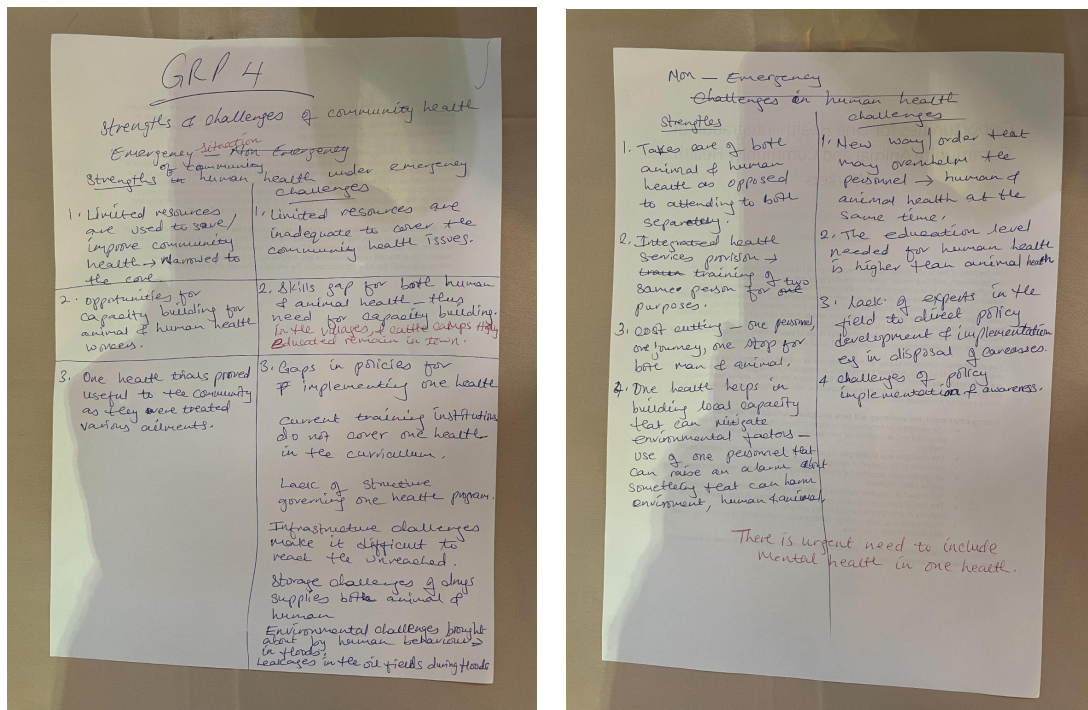 GRP 4
Strengths & challenges of community health
Emergency situation – Non Emergency
of community
Strengths in human health under emergency
challenges
1. Limited resources
are used to save/
improve community
health → Narrowed to
the core
1. Limited resources are
inadequate to cover the
community health issues.
2. Opportunities for
capacity building for
animal & human health
workers.
2. Skills gap for both human
& animal health – thus
need for capacity building.
In the villages, & cattle camps Highly
Educated remain in town.
3. One health trials proved
useful to the community
as they were treated
various ailments.
3. Gaps in policies for
implementing one health
Current training institutions
do not cover one health
in the curricullum.
Lack of structure
governing one health program.
Infrastructure challenges
make it difficult to
reach the unreached.
Storage challenges of drugs
supplies both animal &
human
Environmental challenges brought
about by human behaviour →
in floods.
Leakages in the oil fields during floods
Non – Emergency
Challenges in human health
Strengths
1. Takes care of both
animal & human
health as opposed
to attending to both
separately.
2. Integrated health
services provision →
training of two
same person for one
purposes.
3. Cost cutting – one personnel,
one journey, one stop for
both man & animal.
4. One health helps in
building local capacity
that can mitigate
environmental factors –
use of one personnel that
can raise an alarm about
something that can harm
enviroment, human & animal.
challenges
1. New way/order that
may overwhelm the
personnel → human &
animal health at the
same time.
2. The education level
needed for human health
is higher than animal health
3. Lack of experts in the
field to direct policy
development & implementation
eg in disposal of carcasses.
4 challenges of policy
implementation & awareness.
There is urgent need to include
Mental health in one health.